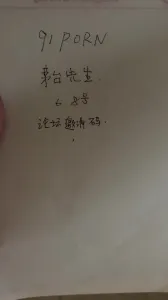 91 PORN
先生
6.8号
论坛邀请码.